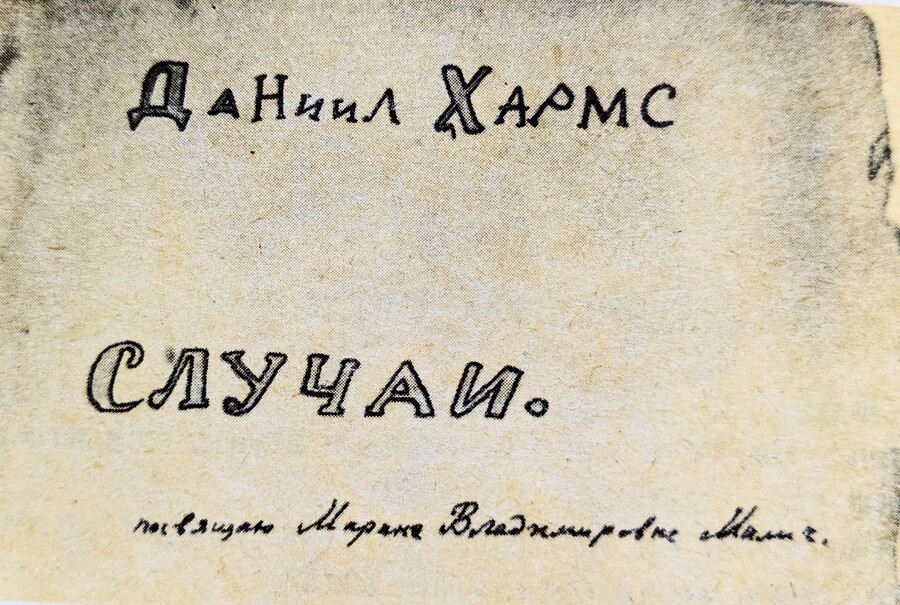 Даниил Хармс
Случаи.
посвящаю Марине Владимировне Малич.